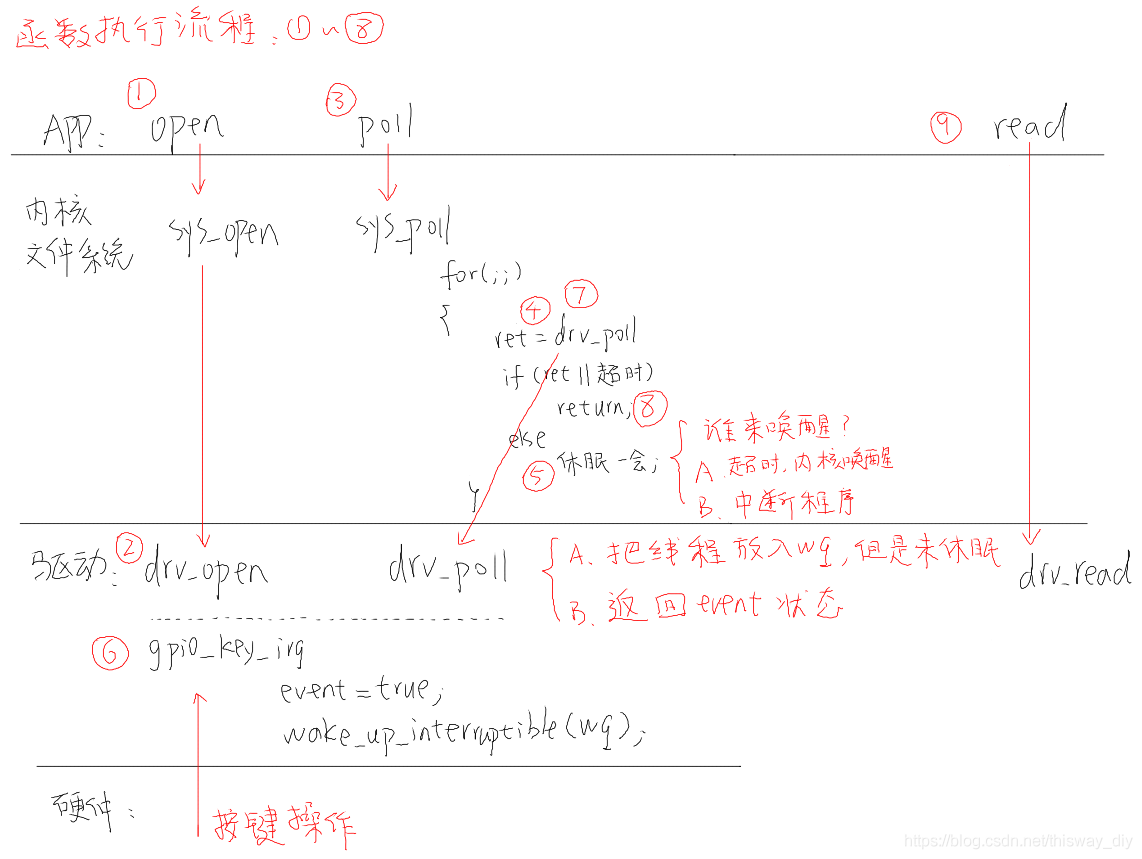 函数执行流程:①~⑧
① ③
App: open poll ⑨ read
内核
文件系统 sys_open sys_poll
for(;;)
{
④ ⑦
ret = drv_poll
if (ret || 超时)
return; ⑧
else
⑤ 休眠一会;
谁来唤醒?
A. 超时,内核唤醒
B. 中断程序
驱动: ② drv_open drv_poll drv_read
A. 把线程放入wq,但是未休眠
B. 返回event状态
⑥ gpio_key_irq
event = true;
wake_up_interruptible(wq);
硬件:
按键操作
https://blog.csdn.net/thisway_diy